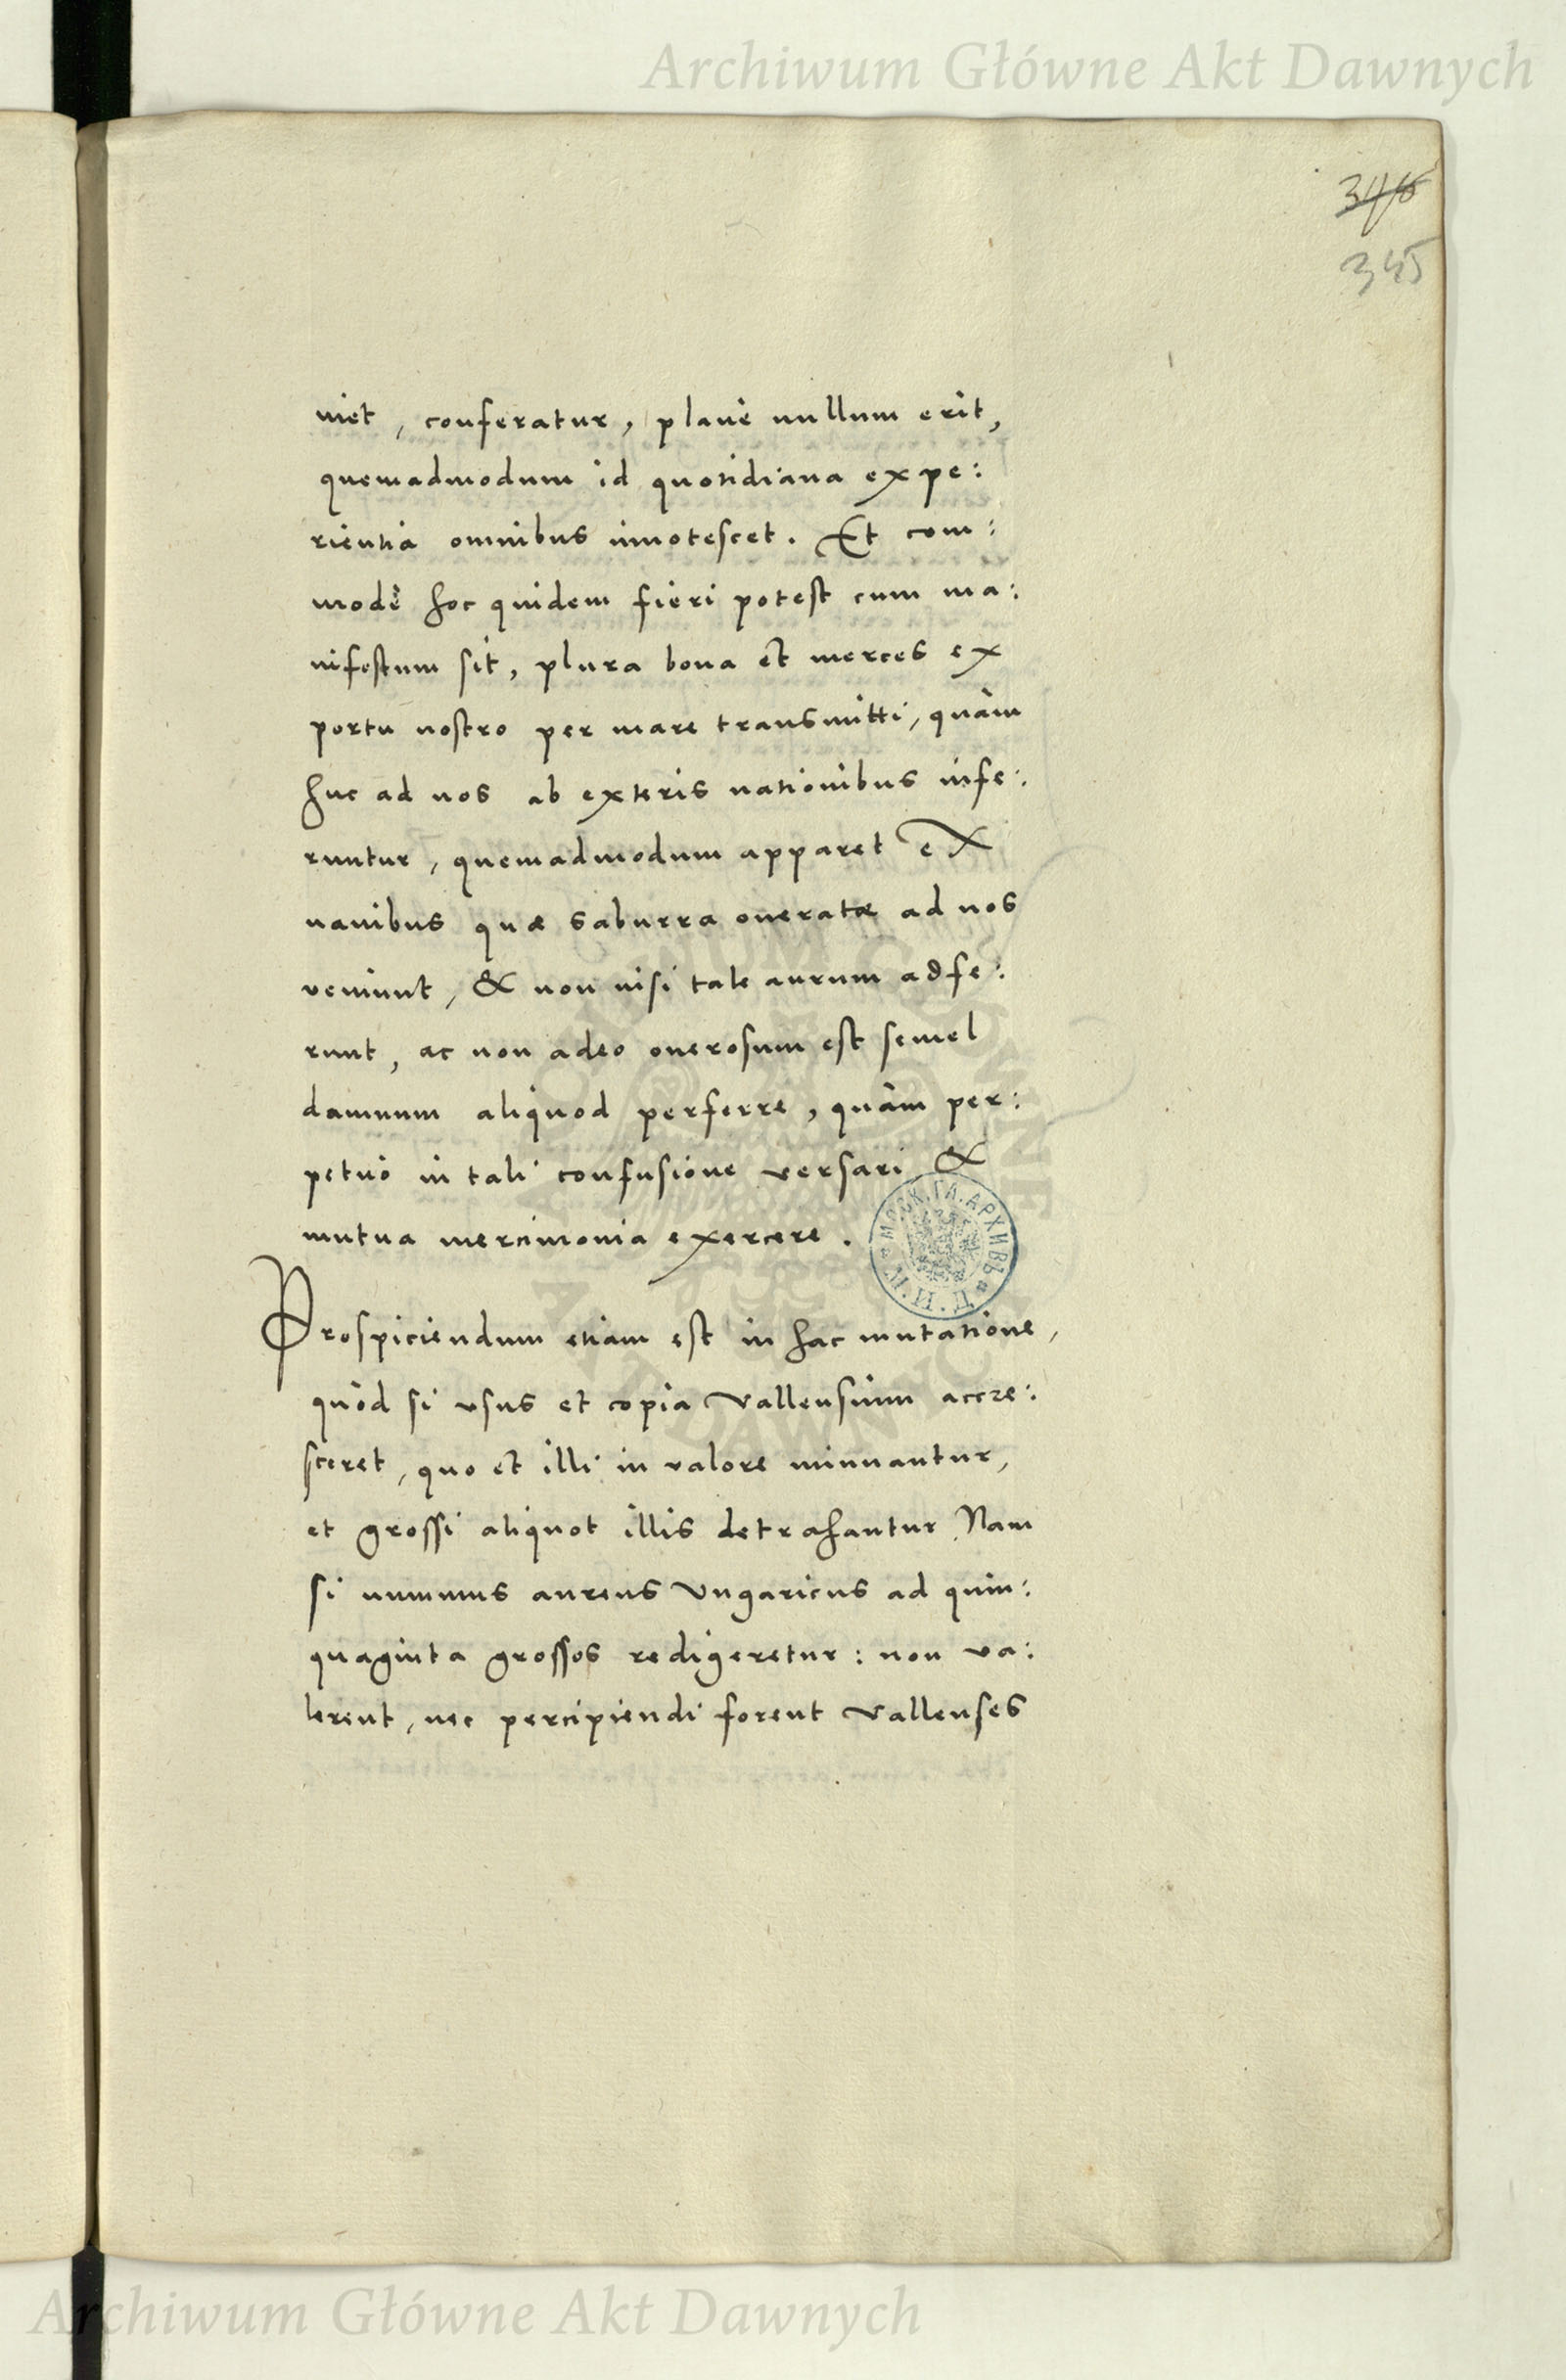 Archiwum Główne Akt Dawnych
346
345
niet, conferatur, planè nullum erit,
quemadmodum id quotidiana expe:
rientia omnibus innotescet. Et com:
modè hoc quidem fieri potest cum ma:
nifestum sit, plura bona et merces ex
portu nostro per mare transmitti, quàm
huc ad nos ab exteris nationibus infe:
runtur, quemadmodum apparet ex
nauibus quæ saburra oneratæ ad nos
veniunt, & non nisi tale aurum adfe:
runt, ac non adeo onerosum est semel
damnum aliquod perferre, quàm per:
petuò in tali confusione versari &
mutua mercimonia exercere.
МОСК. ГЛ. АРХИВЪ
Prospiciendum etiam est in hac mutatione,
quòd si vsus et copia Vallensium accre:
sceret, quo et illi in valore minuantur,
et grossi aliquot illis detrahantur Nam
si nummus aureus Vngaricus ad quin:
quaginta grossos redigeretur: non va:
lerent, nec percipiendi forent Vallenses
Archiwum Główne Akt Dawnych